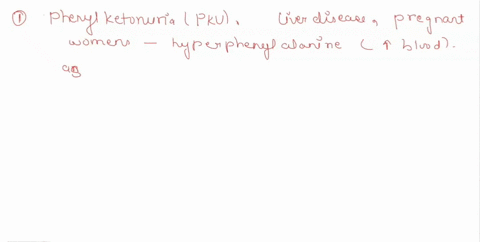 ① Phenyl ketonuria (PKU), liver disease, pregnant
womens - hyperphenyl alanine (↑ blood).
ag